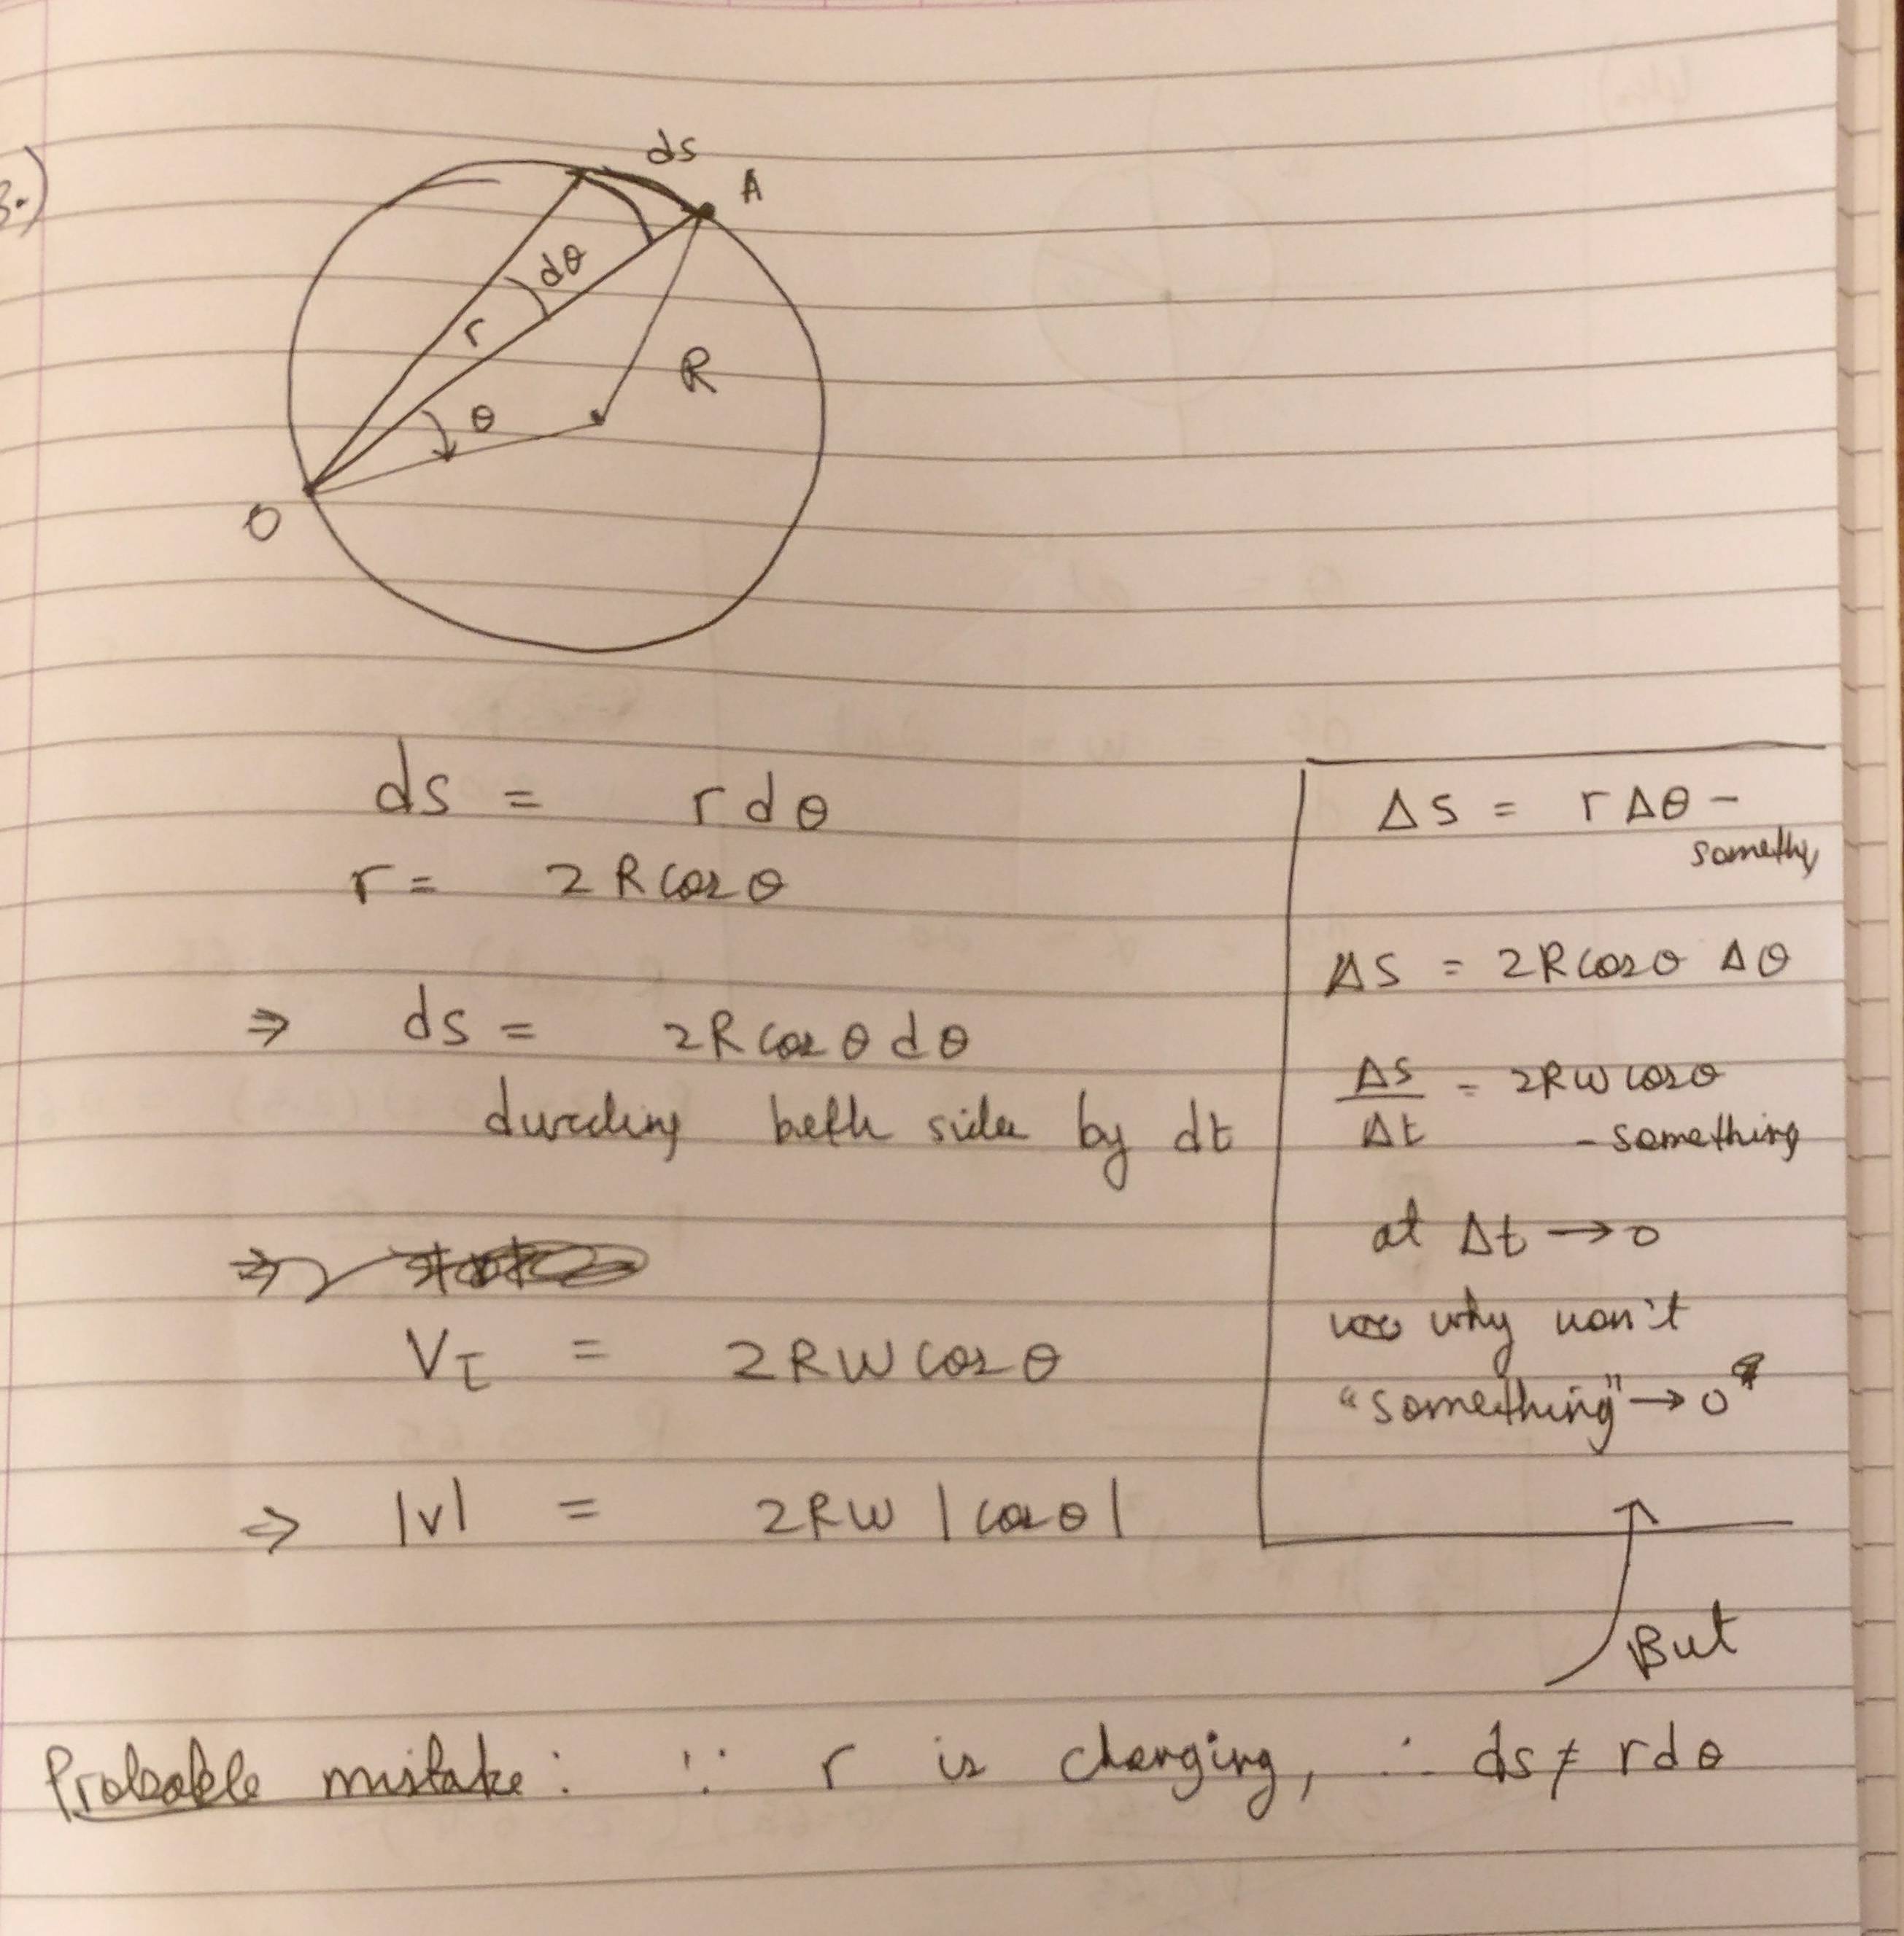 3.)
ds
A
dθ
r
R
θ
O
ds = r dθ
r = 2R cos θ
⇒ ds = 2R cos θ dθ
both sides by dt
⇒
V_τ = 2RW cos θ
⇒ |v| = 2RW |cos θ|
ΔS = rΔθ -
ΔS = 2R cos θ Δθ
ΔS/Δt = 2RW cos θ
- something
at Δt → 0
why won't
"something" → 0 ?
But
Probable mistake: ∵ r is changing, ∴ ds ≠ rdθ